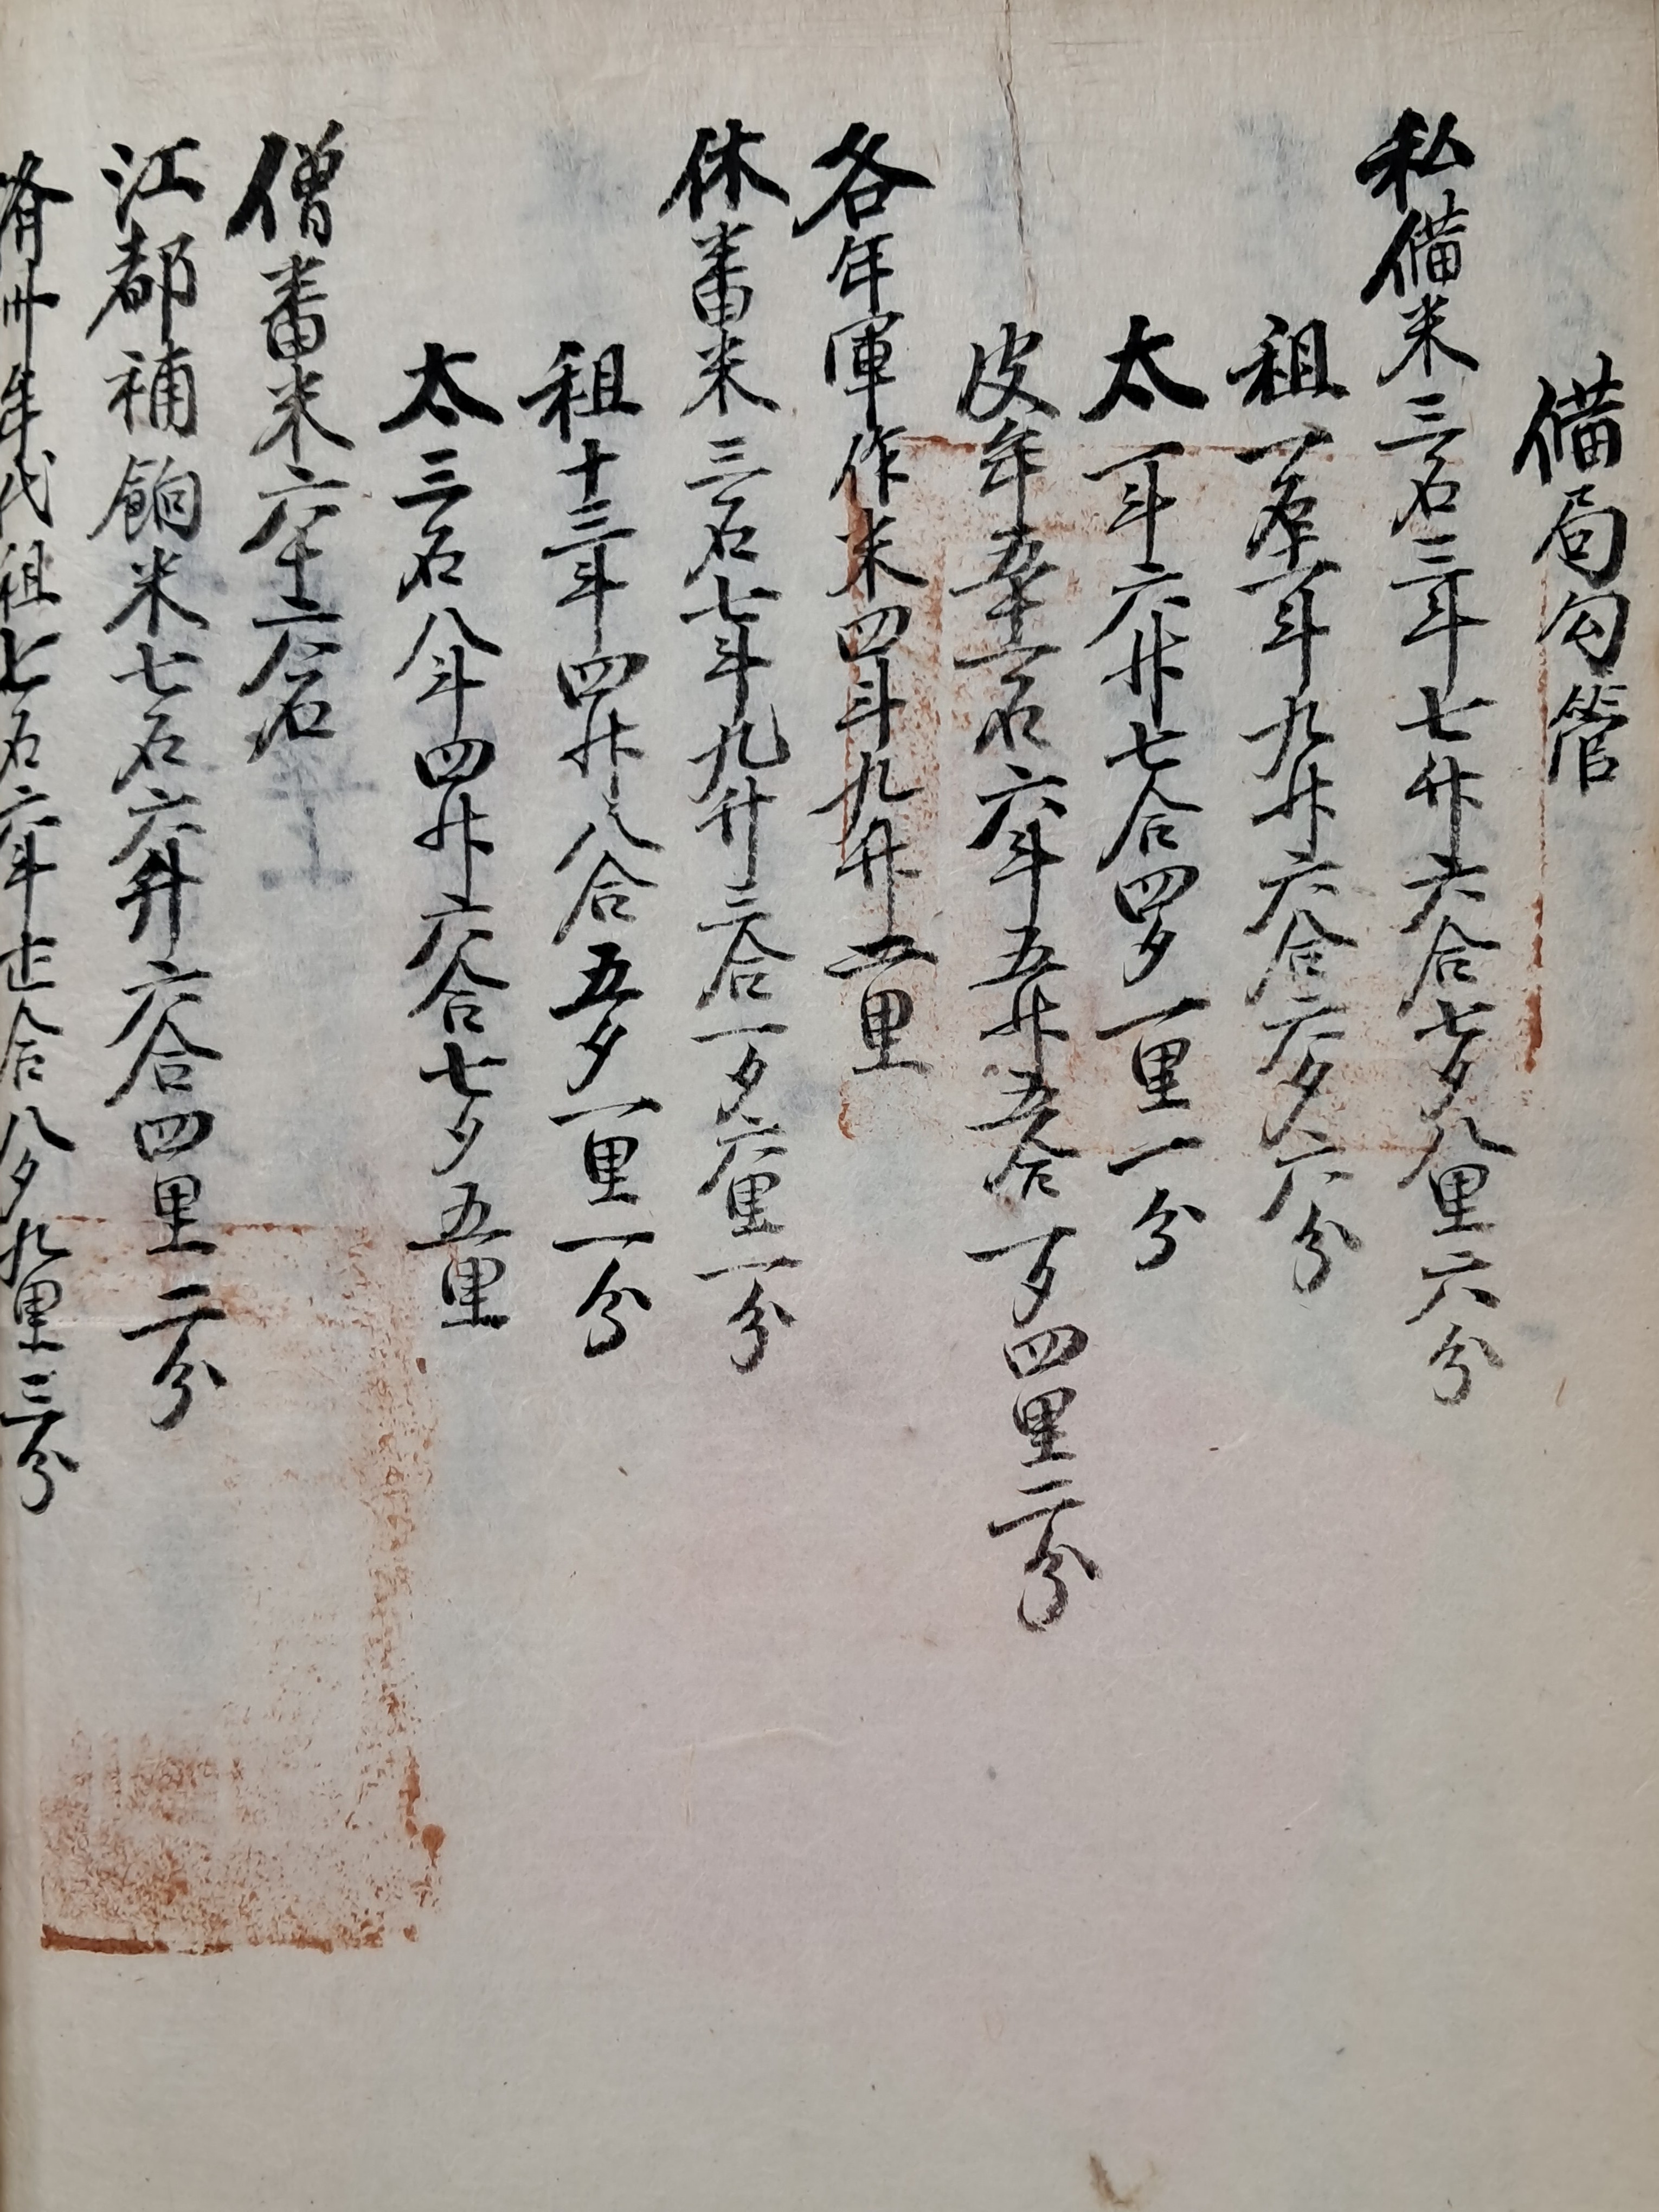 備局勾管
私備米三石三斗七升六合七夕八里六分
租一石一斗九升六合六夕六分
太一斗六升七合四夕一里一分
皮年五十一石六斗五升五合一夕四里二分
各年軍作米四斗九升二里
休番米三石七斗九升三合一夕六里一分
租十三斗四升八合五夕一里一分
太三石八斗四升六合七夕五里
僧番米六十六石
江都補餉米七石六升六合四里二分
済州年代租七石六斗七合八夕九里三分